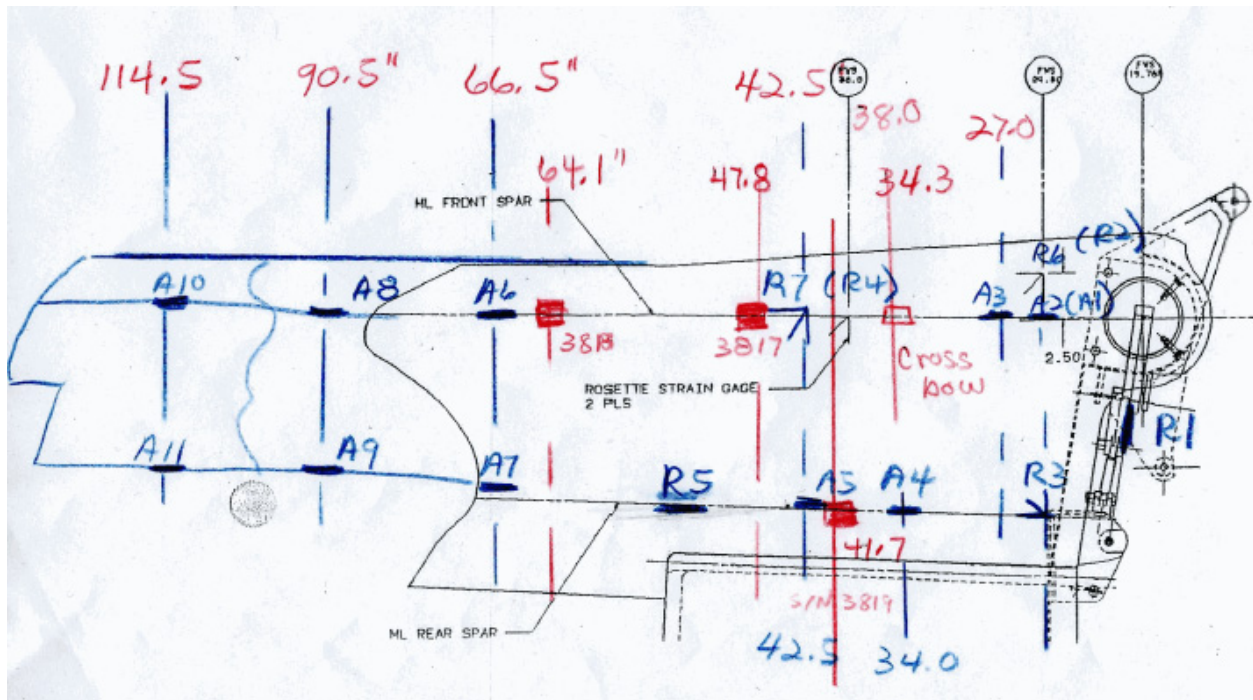 114.5
90.5"
66.5"
42.5
FWS
FWS
38.0
27.0
64.1"
47.8
34.3
ML FRONT SPAR
A10
A8
A6
R7 (R4)
A3
R6
(R2)
A2(A1)
3818
3817
Cross
Bow
2.50
ROSETTE STRAIN GAGE
2 PLS
A11
A9
A7
R5
A5
A4
R3
R1
41.7
S/N 3819
ML REAR SPAR
42.5
34.0